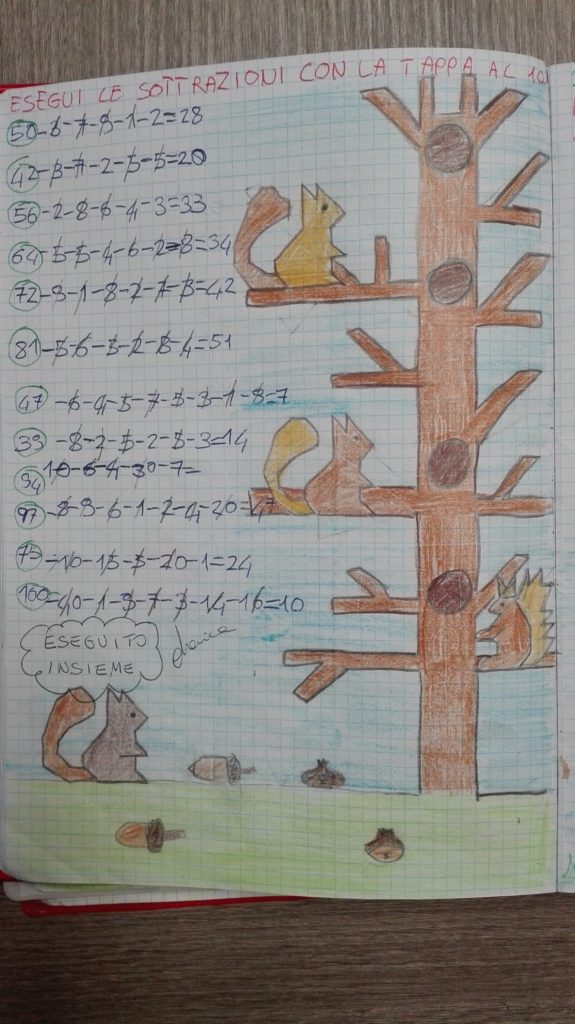 ESEGUI LE SOTTRAZIONI CON LA TAPPA AL 10
50-8-7-9-1-2=28
42-3-7-2-5-5=20
56-2-8-6-4-3=33
64-5-5-4-6-2-8=34
72-9-1-8-2-7-3=42
81-5-6-5-2-8-4=51
47-6-4-5-7-5-3-1-8=7
39-8-2-5-2-5-3=14
94 10-6-4-30-7=
97-8-9-6-1-2-4-20=47
75-10-15-5-20-1=24
160=40-1-9-7-3-14-16=10
ESEGUITO
INSIEME